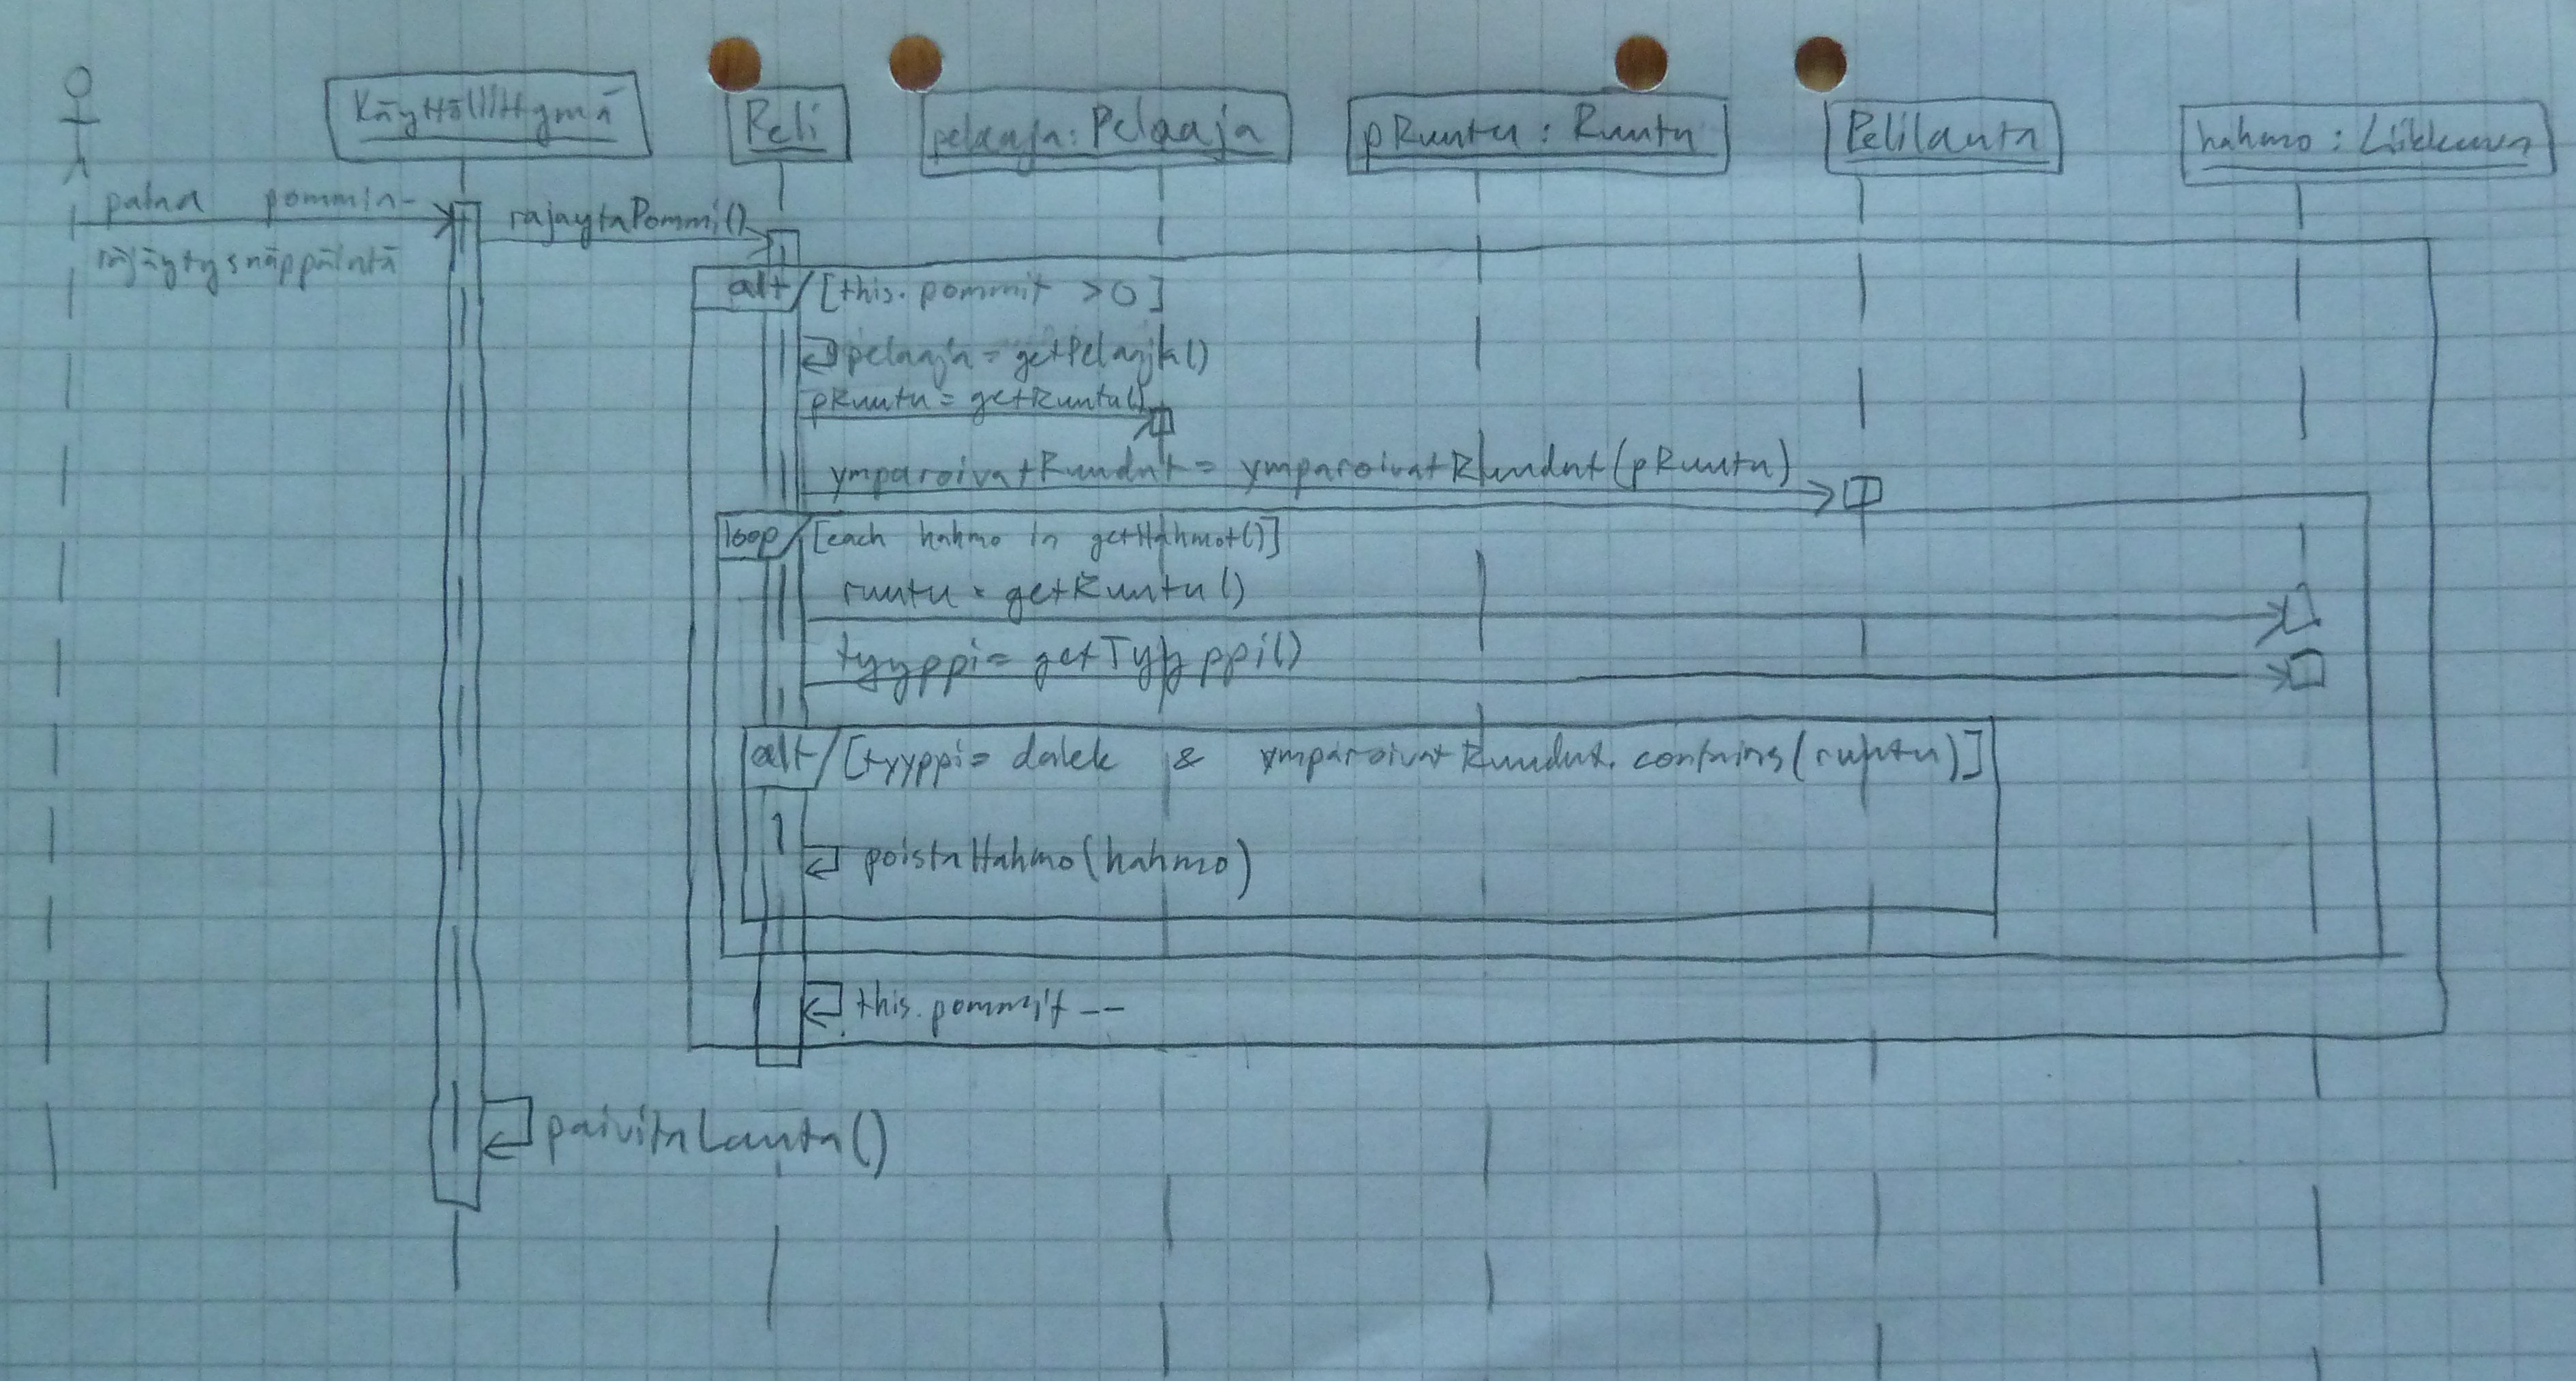 Käyttöliittymä
Peli
pelaaja: Pelaaja
pRuutu : Ruutu
Pelilauta
hahmo : Liikkuva
painaa pommin-
räjäytysnäppäintä
rajaytaPommi()
alt [this.pommit >0]
pelaaja = getPelaaja()
pRuutu = getRuutu()
ymparoivatRuudut = ymparoivatRuudut(pRuutu)
loop [each hahmo in getHahmot()]
ruutu = getRuutu()
tyyppi = getTyyppi()
alt [tyyppi = dalek & ymparoivatRuudut.contains(ruutu)]
poistaHahmo(hahmo)
this.pommit --
paivitaLauta()